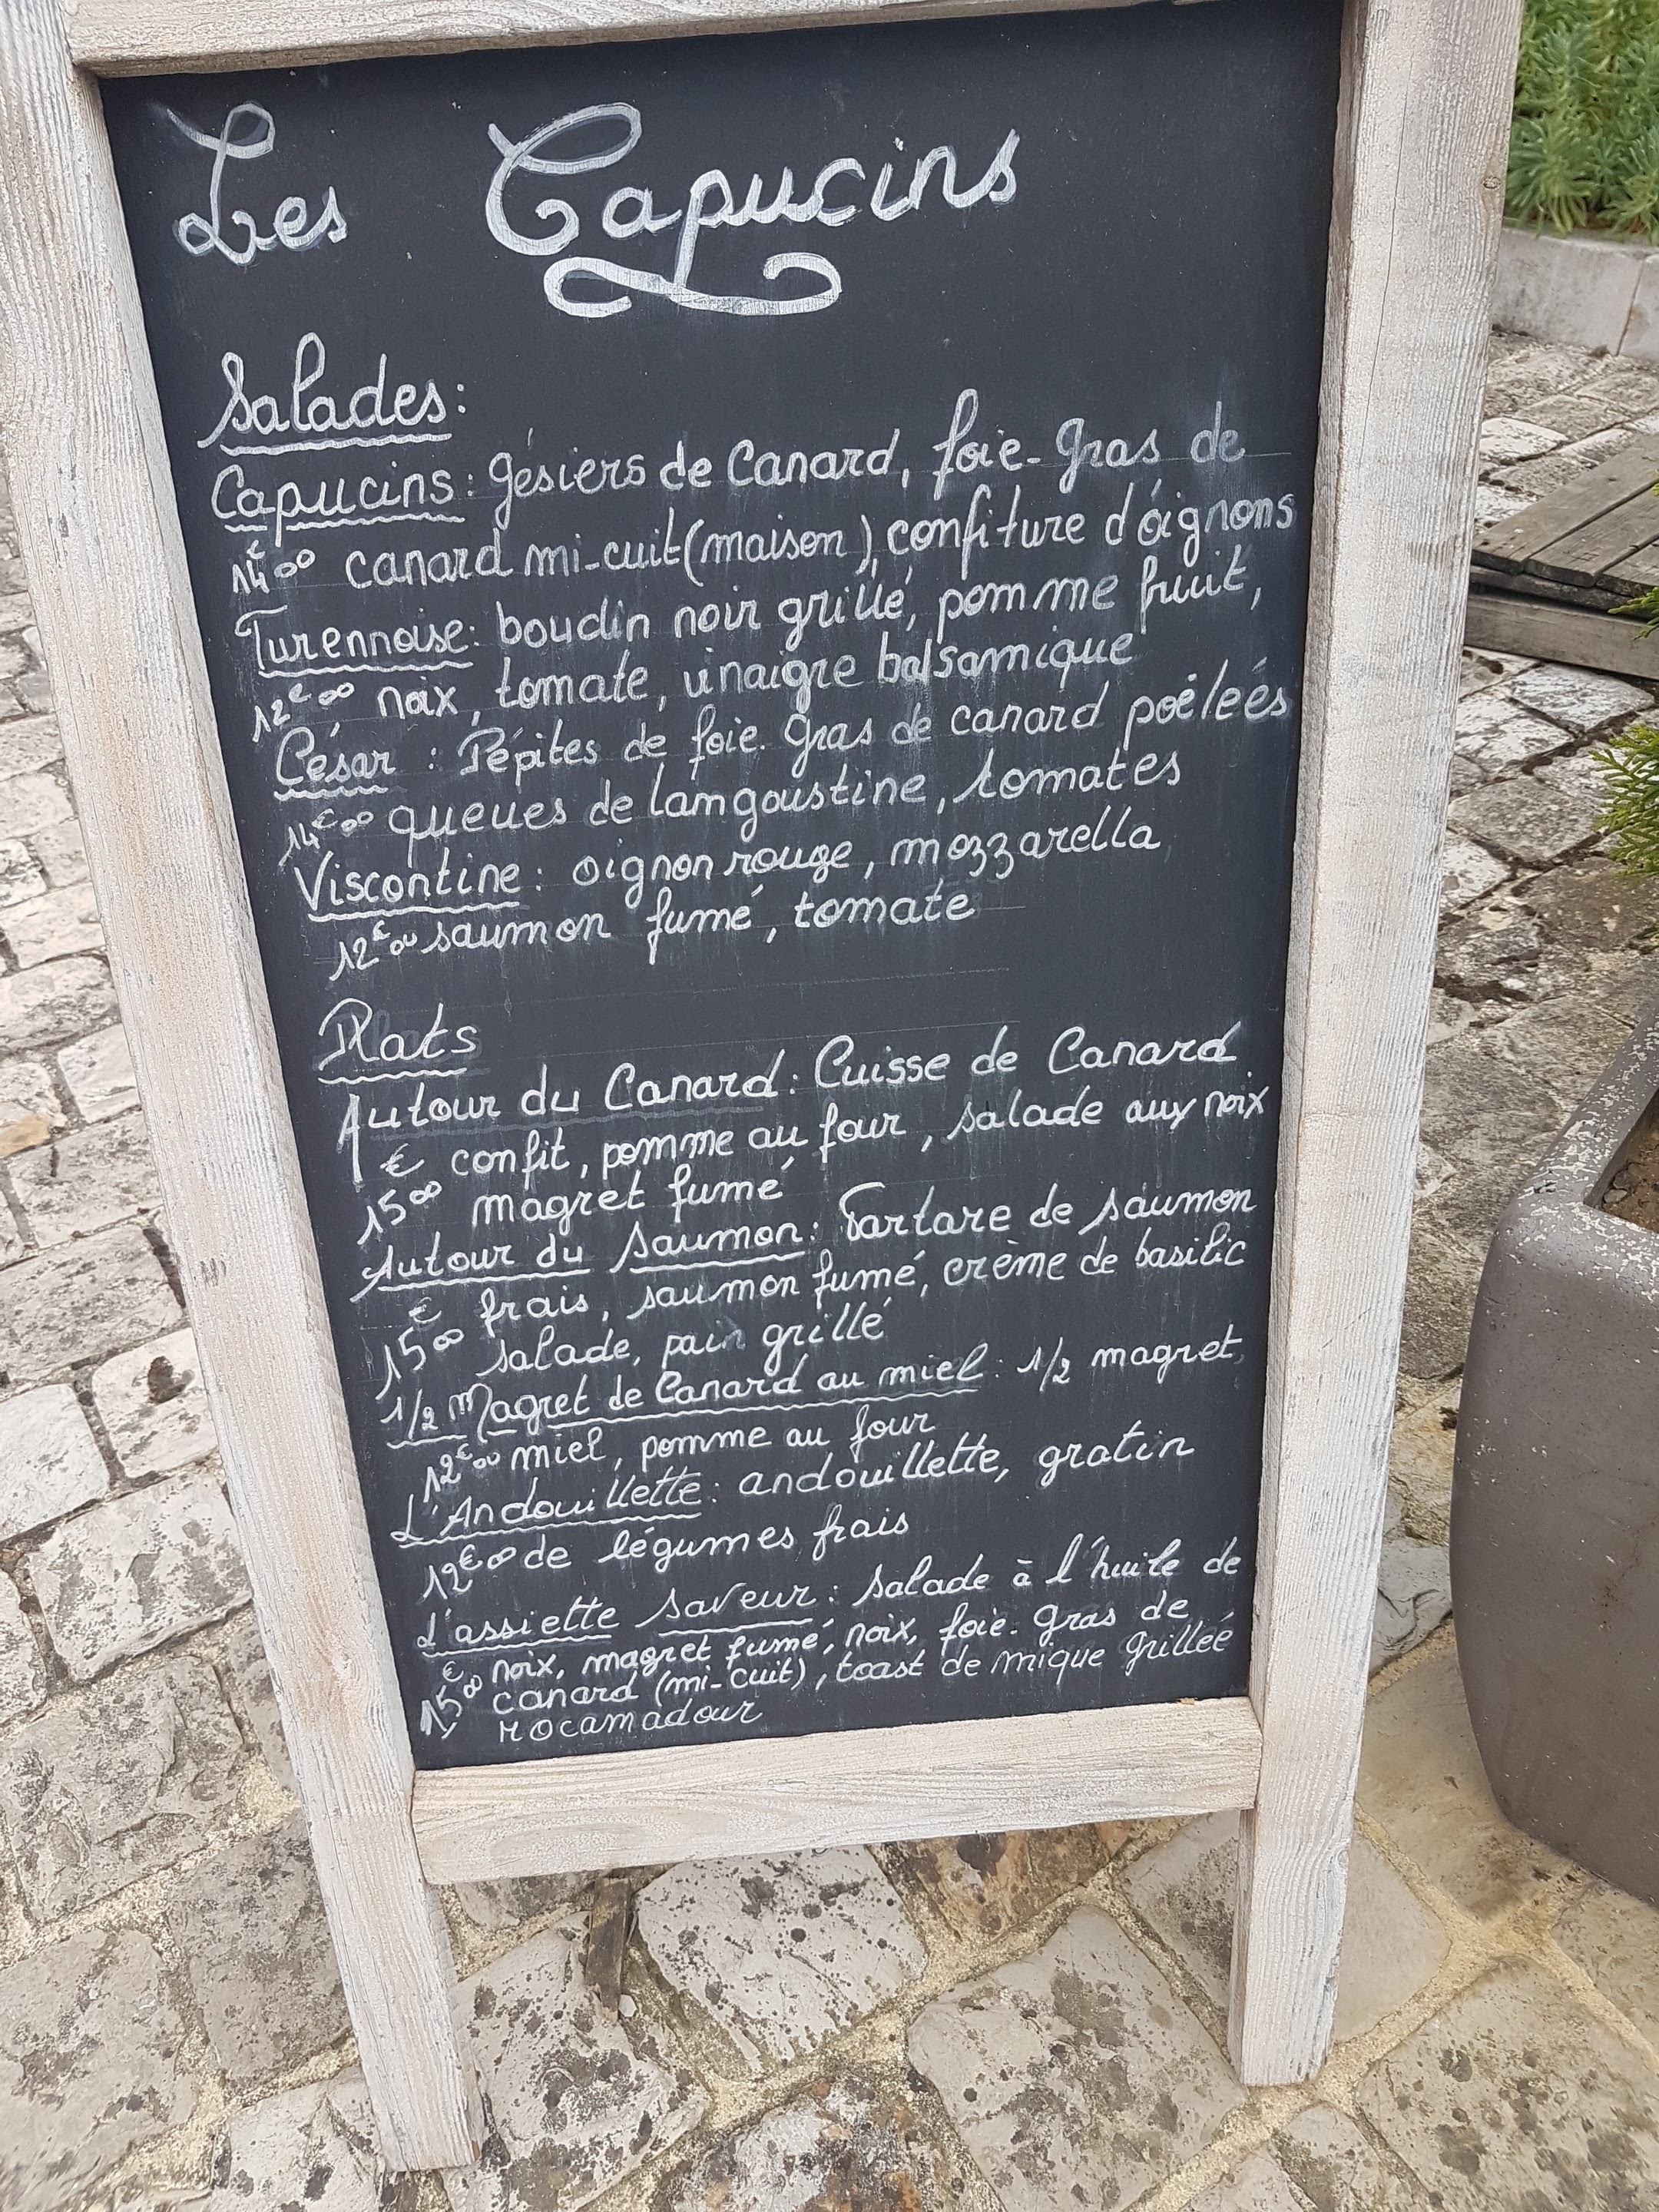 Les Capucins
Salades:
Capucins: gésiers de Canard, foie-gras de
14€00 canard mi-cuit (maison), confiture d'oignons
Turennoise: boudin noir grillé, pomme fruit,
12€00 noix, tomate, vinaigre balsamique
César : Pépites de foie.gras de canard poëleés
14€00 queues de langoustine, tomates
Viscontine: oignon rouge, mozzarella,
12€00 saumon fumé, tomate
Plats
Autour du Canard: Cuisse de Canard
€ confit, pomme au four, salade aux noix
1500 magret fumé
Autour du saumon: Tartare de saumon
€ frais, saumon fumé, crème de basilic
1500 salade, pain grillé
1/2 Magret de Canard au miel: 1/2 magret,
12€00 miel, pomme au four
L'Andouillette: andouillette, gratin
12€00 de légumes frais
L'assiette saveur: salade à l'huile de
€ noix, magret fumé, noix, foie-gras de
1500 canard (mi-cuit), toast de mique grilleé
rocamadour